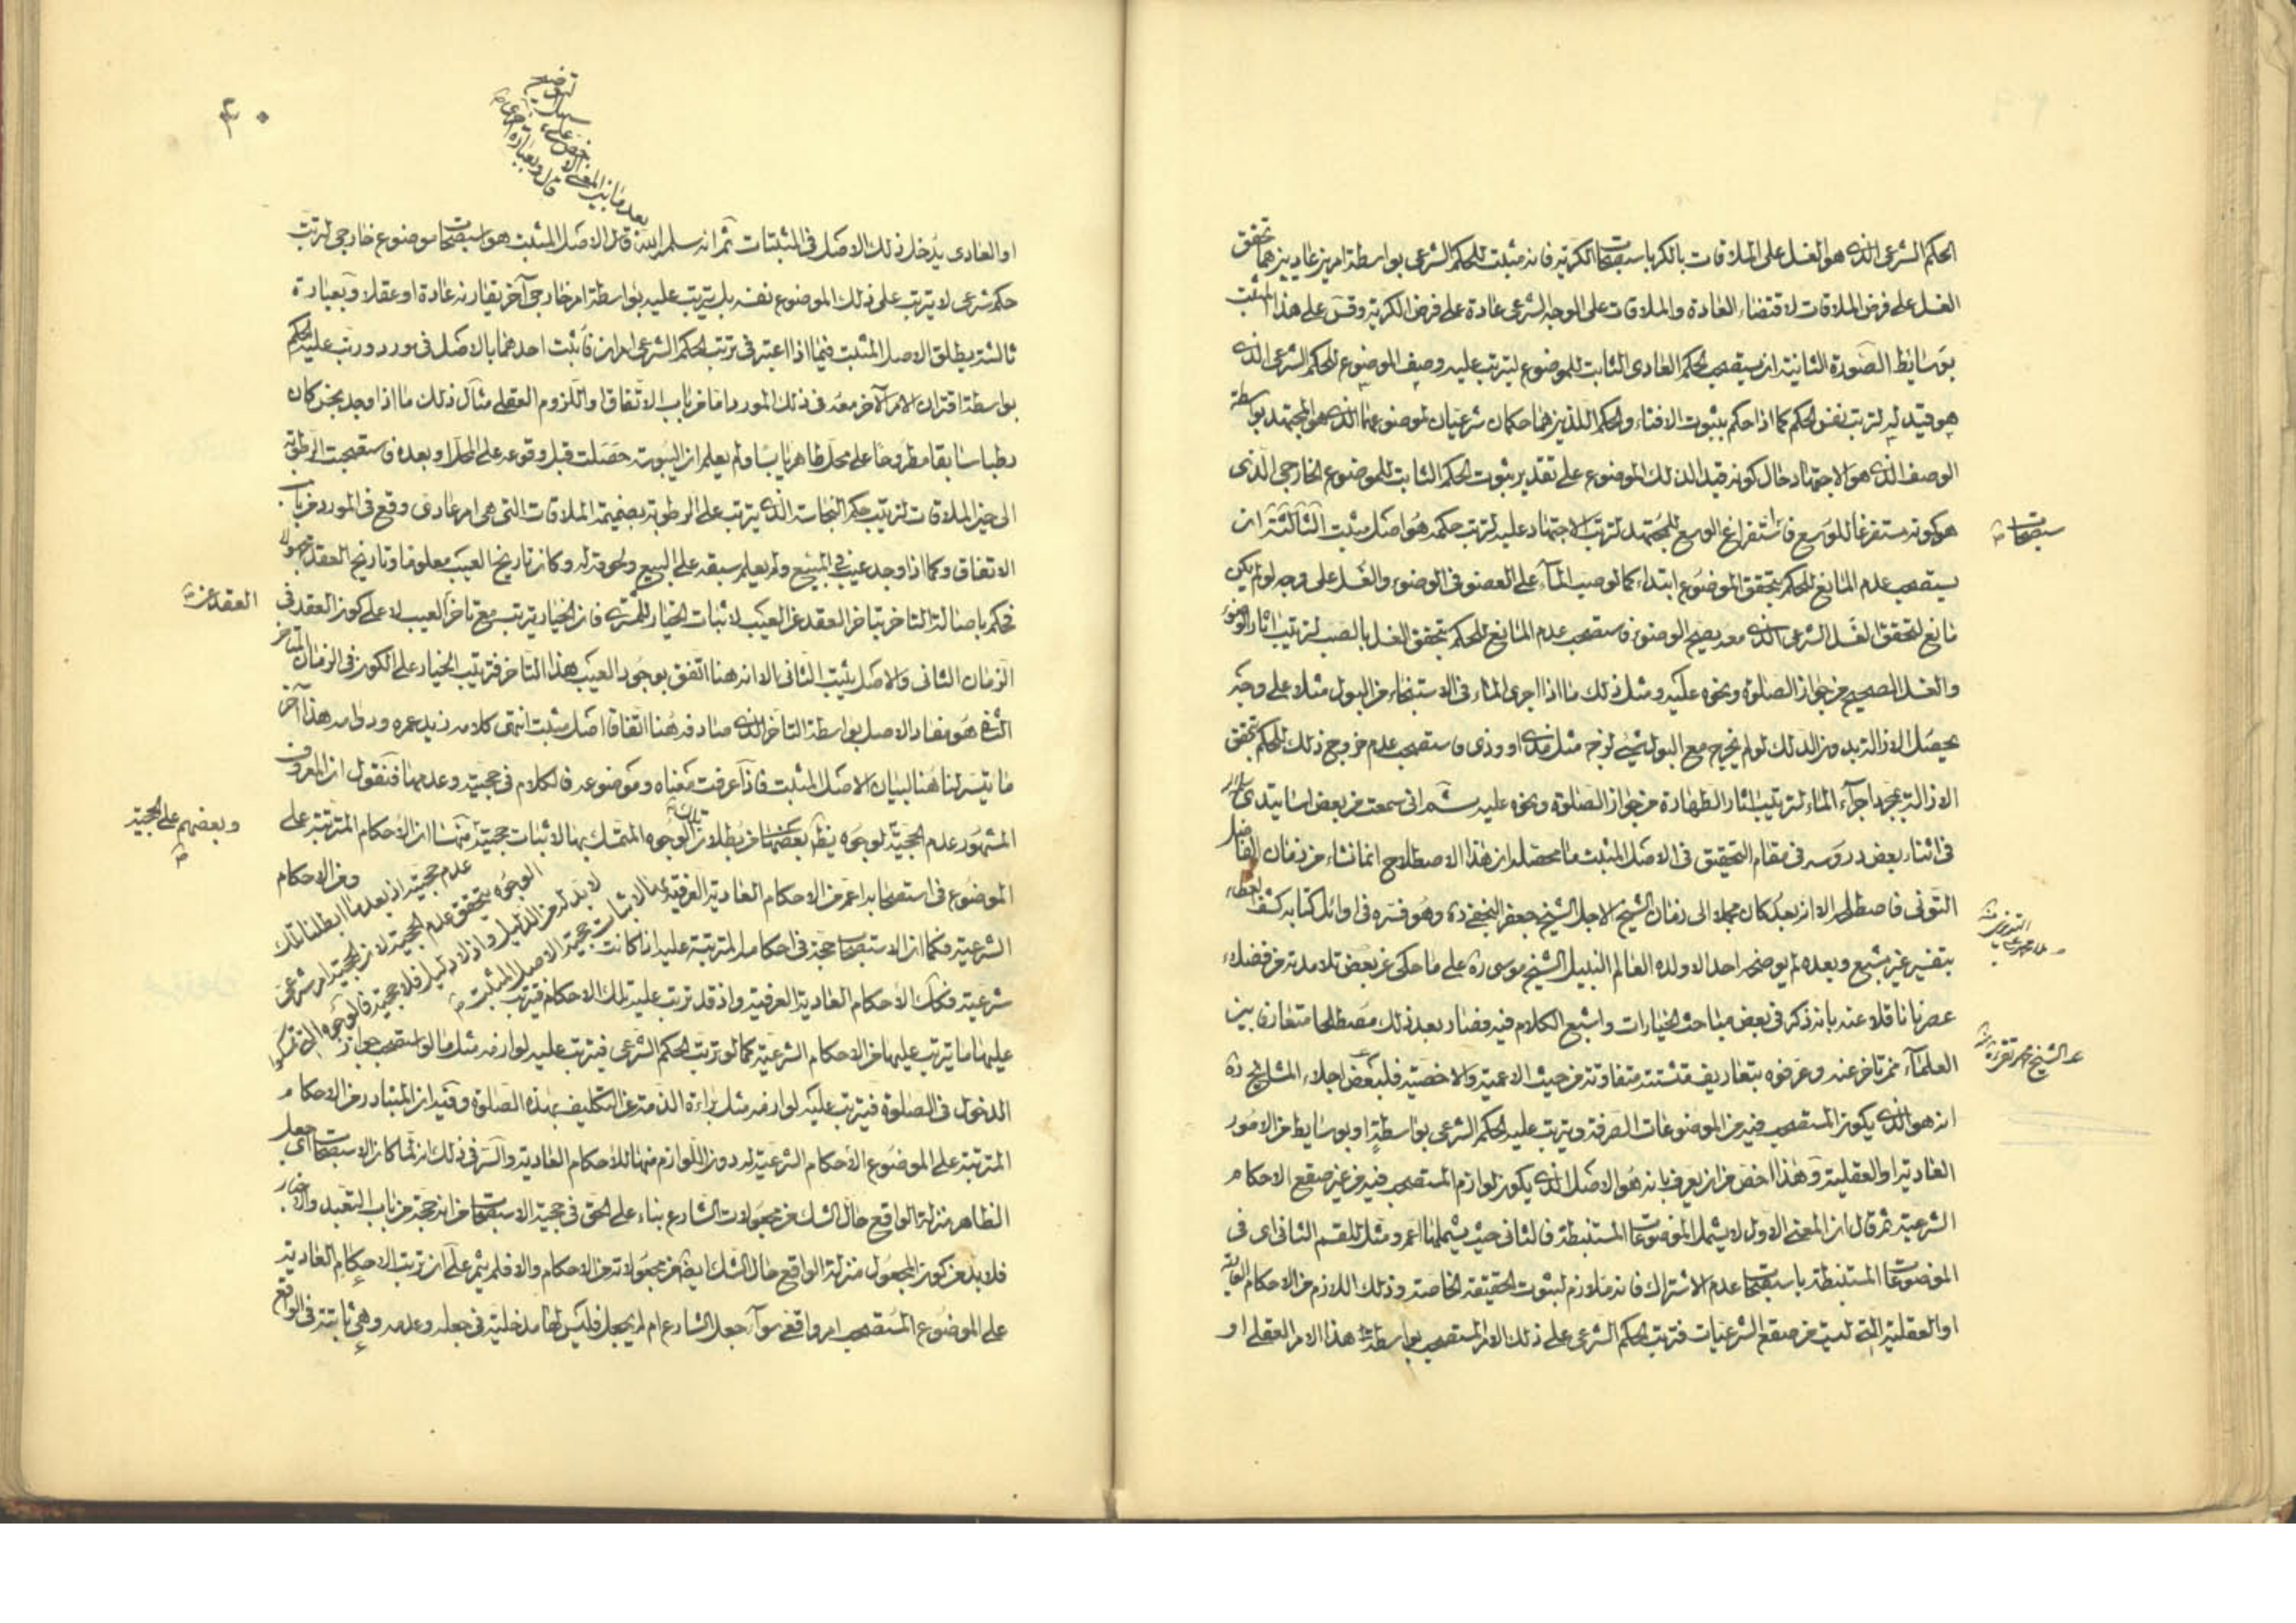 الحكم الشرعى الذى هو الغسل على الملاقات بالكر باستصحاب الكرية فانه مثبت للحكم الشرعى بواسطة امرين عاديين هما تحقق
الغسل على فرض الملاقات لاقتضاء العادة والملاقات على الوجه الشرعى عادة على فرض الكرية وقس على هذا المثبت
بوسايط الصورة الثانية ان يستصحب الحكم العادى الثابت للموضوع ليترتب عليه وصف الموضوع للحكم الشرعى الذى
هو قيد له لترتب نفس الحكم كما اذا حكم بثبوت الافتاء والحكم اللذين هما حكمان شرعيان لموضوعهما الذى هو المجتهد بواسطة
الوصف الذى هو الاجتهاد حال كونه قيدا لذلك الموضوع على تقدير ثبوت الحكم الثابت للموضوع الخارجى الذى
هو كونه مستفرغا للوسع فاستفراغ الوسع للمجتهد لترتب الاجتهاد عليه لترتب حكمه هو اصل مثبت الثالثة ان
استصحاب
يستصحب عدم المانع للحكم بتحقق الموضوع ابتداء كما لو صب الماء على العضو فى الوضوء والغسل على وجه لو لم يكن
مانع لتحقق الغسل الشرعى الذى معه يصح الوضوء فاستصحب عدم المانع للحكم بتحقق الغسل بالصب لترتيب اثار الوضوء
والغسل الصحيح من جواز الصلوة ونحوه عليه ومثل ذلك ما اذا اجرى الماء فى الاستنجاء من البول مثلا على وجه
يحصل الازالة بدون الدلك لو لم يخرج مع البول شىء لزجه مثل مذى او وذى فاستصحب عدم خروج ذلك للحكم بتحقق
الازالة بمجرد اجراء الماء لترتيب اثار الطهارة من جواز الصلوة ونحوه عليه ثم انى سمعت من بعض اساتيدى
فى اثناء بعض دروسه فى مقام التحقيق فى الاصل المثبت ما محصله ان هذا الاصطلاح انما نشاء من زمان الفاضل
التونى فاصطلحه الا انه بعد كان مجملا الى زمان الشيخ الاجل الشيخ جعفر النجفى ره وهو فسره فى اوائل كتابه كشف الغطاء
بتفسير غير مشبع وبعده لم يوضحه احد الا ولده العالم النبيل الشيخ موسى ره على ما حكى عن بعض تلامذته من فضلاء
عصرنا ناقلا عنه بانه ذكر فى بعض مباحث الخيارات واشبع الكلام فيه فصار بعد ذلك مصطلحا متعارف بين
العلماء ممن تاخر عنه وعرفوه بتعاريف متشتتة متفاوتة من حيث الاعمية والاخصية فلبعض اجلاء المشايخ ره
هو الشيخ محمد تقى ره
انه هو الذى يكون المستصحب فيه من الموضوعات الصرفة ويترتب عليه الحكم الشرعى بواسطة او بوسايط من الامور
العادية او العقلية وهذا اخص من ان يعرف بانه هو الاصل الذى يكون لوازم المستصحب فيه من غير صقع الاحكام
الشرعية ثم قال ان المعنى الاول لا يشمل الموضوعات المستنبطة فالثانى حيث يشملها اعم ومثل للقسم الثانى اى فى
الموضوعات المستنبطة باستصحاب عدم الاشتراك فانه ملازم لثبوت الحقيقة الخاصة وذلك اللازم من الاحكام العادية
او العقلية التى ليست من صقع الشرعيات فترتب الحكم الشرعى على ذلك الامر المستصحب بواسطة هذا الامر العقلى او
٤٠
توضيح
او العادى يدخل ذلك الاصل فى المثبتات ثم انه سلمه الله قال الاصل المثبت هو استصحاب موضوع خارجى لترتب
حكم شرعى لا يترتب على ذلك الموضوع نفسه بل يترتب عليه بواسطة امر خارجى آخر يقارنه عادة او عقلا وبعبارة
ثالثة يطلق الاصل المثبت فيما اذا اعتبر فى ترتب الحكم الشرعى امران فاثبت احدهما بالاصل فى مورد ورتب عليه الحكم
بواسطة اقتران الامر الآخر معه فى ذلك المورد اما من باب الاتفاق او اللزوم العقلى مثال ذلك ما اذا وجد نجس كان
رطبا سابقا مطروحا على محل طاهر يابسا ولم يعلم ان اليبوسة حصلت قبل وقوعه على المحل او بعده فاستصحبت الرطوبة
الى حين الملاقات لترتيب حكم النجاسة الذى يترتب على الرطوبة بضميمة الملاقات التى هى امر عادى وقع فى المورد من باب
الاتفاق وكما اذا وجد عيب فى المبيع ولم يعلم سبقه على البيع ولحوقه له وكان تاريخ العيب معلوما وتاريخ العقد مجهولا
فحكم باصالة التاخر بتاخر العقد عن العيب لاثبات الخيار للمشترى فان الخيار يترتب مع تاخر العيب لا على كون العقد فى
العقد عن
الزمان الثانى والاصل يثبت الثانى الا انه هنا اتفق بوجود العيب هذا التاخر فترتب الخيار على الكون فى الزمان المتاخر
الذى هو مفاد الاصل بواسطة التاخر الذى صادفه هنا اتفاقا اصل مثبت انتهى كلامه زيد عمره ودوامه هذا آخر
ما تيسر لنا هنا لبيان الاصل المثبت فاذا عرفت معناه وموضوعه فالكلام فى حجيته وعدمها فنقول ان المعروف
المشهور عدم الحجية لوجوه يظهر بعضها من بطلان الوجوه المتمسك بها لاثبات حجيته منها ان الاحكام المترتبة على
وبعضهم على الحجية
الموضوع فى استصحابه اعم من الاحكام العادية العرفية ومن الاحكام
الشرعية فكما ان الاستصحاب حجة فى احكامه المترتبة عليه اذا كانت
شرعية فكذلك الاحكام العادية العرفية واذ قد ترتب عليه تلك الاحكام فيترتب
عليها ما يترتب عليها من الاحكام الشرعية كما لو ترتب الحكم الشرعى فيترتب عليه لوازمه مثل ما لو استصحب جواز
الدخول فى الصلوة فيترتب عليه لوازمه مثل براءة الذمة عن التكليف بهذه الصلوة وفيه ان المتبادر من الاحكام
المترتبة على الموضوع الاحكام الشرعية له دون اللوازم منها للاحكام العادية والسر فى ذلك انه لما كان الاستصحاب اى جعل
الظاهر منزلة الواقع حال الشك من مجعولات الشارع بناء على الحق فى حجية الاستصحاب من انه حجة من باب التعبد والاخبار
فلا بد من كون المجعول منزلة الواقع حال الشك ايضا من مجعولاته من الاحكام والا فلم يتم على ان ترتب الاحكام العادية
على الموضوع المستصحب امر واقعى سواء جعل الشارع ام لم يجعل فليس لها مدخلية فى جعله وعدمه وهى ثابتة فى الواقع